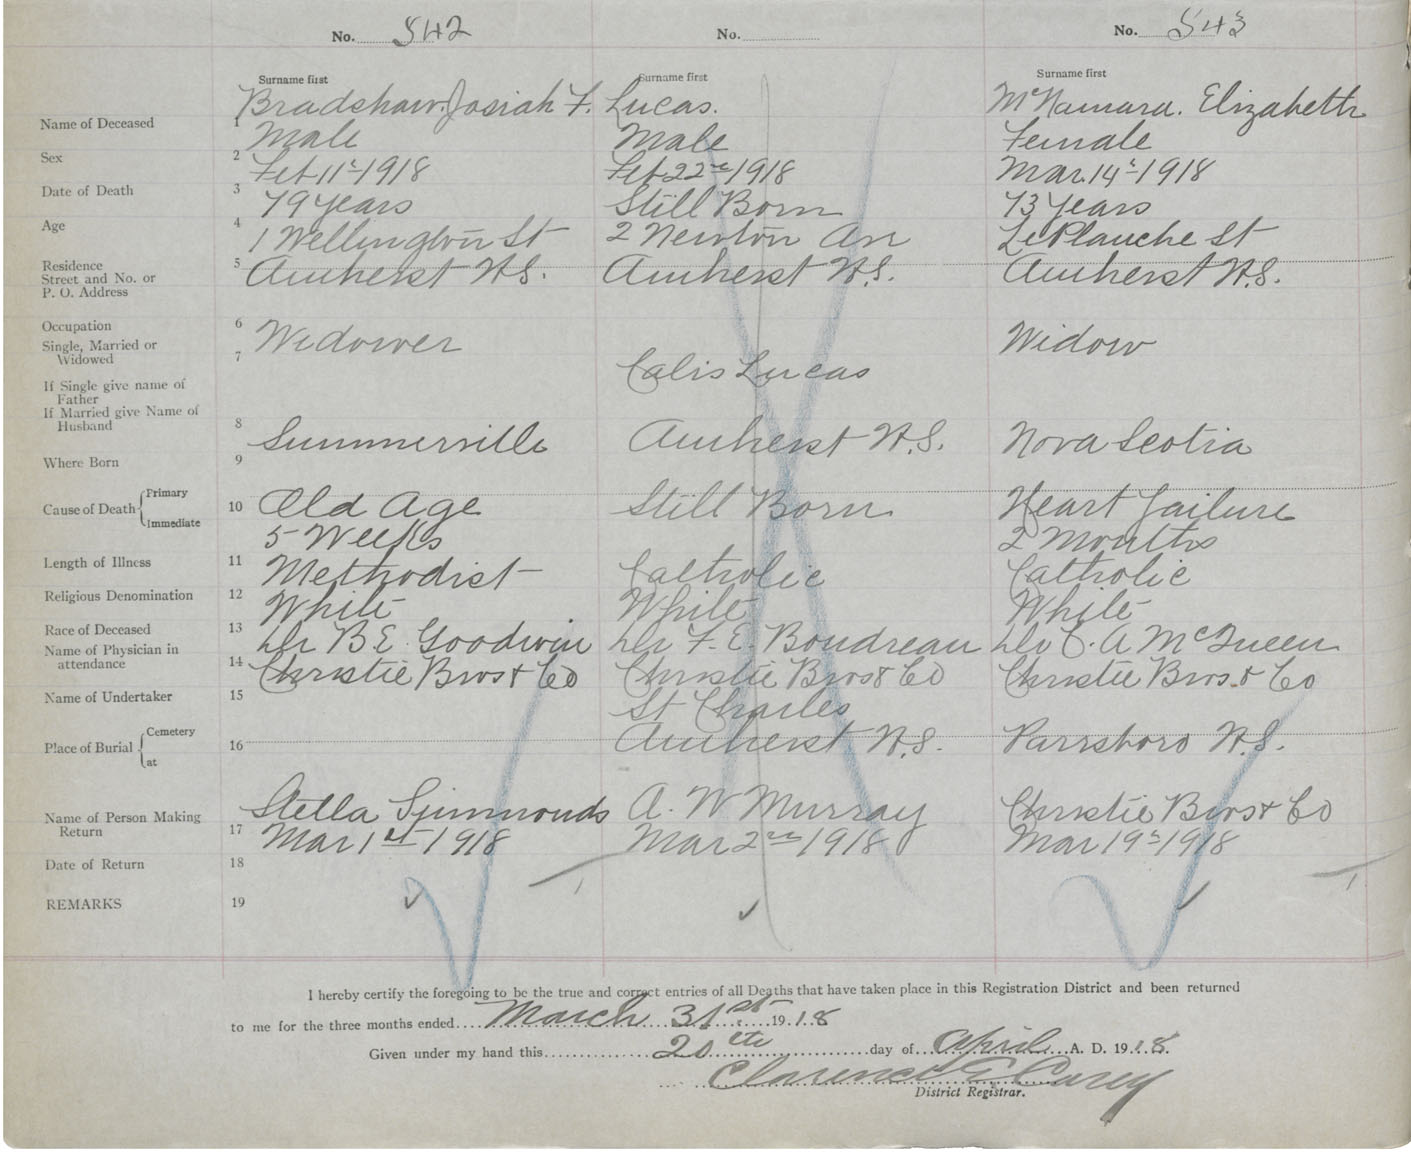 No. 542 No. No. 543
Surname first Surname first Surname first
Name of Deceased 1 Bradshaw. Josiah F. Lucas. McNamara. Elizabeth
Sex 2 Male Male Female
Date of Death 3 Feb 11th 1918 Feb 22nd 1918 Mar 14th 1918
Age 4 79 years Still Born 73 years
1 Wellington St 2 Newton Av LePlanche St
Residence
Street and No. or
P. O. Address
5 Amherst N.S. Amherst N.S. Amherst N.S.
Occupation 6
Single, Married or
Widowed
7 Widower Widow
If Single give name of
Father
Calis Lucas
If Married give Name of
Husband
8
Where Born 9 Summerville Amherst N.S. Nova Scotia
Cause of Death Primary
Immediate
10 Old Age Still Born Heart Failure
Length of Illness 11 5 Weeks 2 Months
Religious Denomination 12 Methodist Catholic Catholic
Race of Deceased 13 White White White
Name of Physician in
attendance
14 Dr B.E. Goodwin Dr F. E. Boudreau Dr J. A McQueen
Name of Undertaker 15 Christie Bros & Co Christie Bros & Co Christie Bros. & Co
Place of Burial Cemetery
at
16 St Charles
Amherst N.S. Parrsboro N.S.
Name of Person Making
Return
17 Stella Simmonds A. W Murray Christie Bros & Co
Date of Return 18 Mar 1st 1918 Mar 2nd 1918 Mar 19th 1918
REMARKS 19
I hereby certify the foregoing to be the true and correct entries of all Deaths that have taken place in this Registration District and been returned
to me for the three months ended March 31st 1918
Given under my hand this 20th day of April A. D. 1918.
Clarence E Casey
District Registrar.